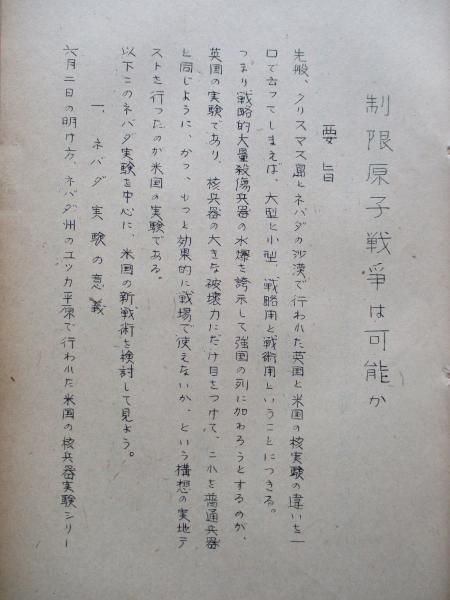 制限原子戦争は可能か
要旨
先般、クリスマス島とネバダの沙漠で行われた英国と米国の核実験の違いを一
口で云つてしまえば、大型と小型、戦略用と戦術用ということにつきる。
つまり戦略的大量殺傷兵器の水爆を誇示して強国の列に加わろうとするのが、
英国の実験であり、核兵器の大きな破壊力にだけ目をつけて、これを普通兵器
と同じように、かつ、もつと効果的に戦場で使えないか、という構想の実地テ
ストを行つたのが米国の実験である。
以下このネバダ実験を中心に、米国の新戦術を検討して見よう。
一、ネバダ実験の意義
六月二日の明け方、ネバダ州のユツカ平原で行われた米国の核兵器実験シリー